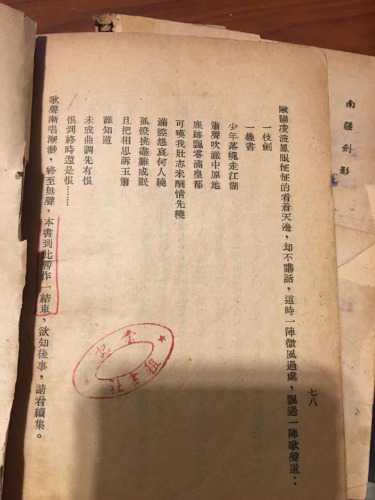 南疆劍影
七八
歐陽凌波鳳眼怔怔的看着天邊，却不講話，這時一陣微風過處，飄過一陣歌聲道：
一枝劍
一幾書
少年落魄走江湖
簫聲吹徹中原地
塵跡飄零滿皇都
可嘆我壯志未酬情先犧
滿懷怨哀何人曉
孤燈挑盡難成眠
且把相思訴玉簫
誰知道
未成曲調先有恨
恨到終時還是恨……
歌聲漸唱漸渺，終至無聲，本書到此暫作一結束，欲知後事，請看續集。